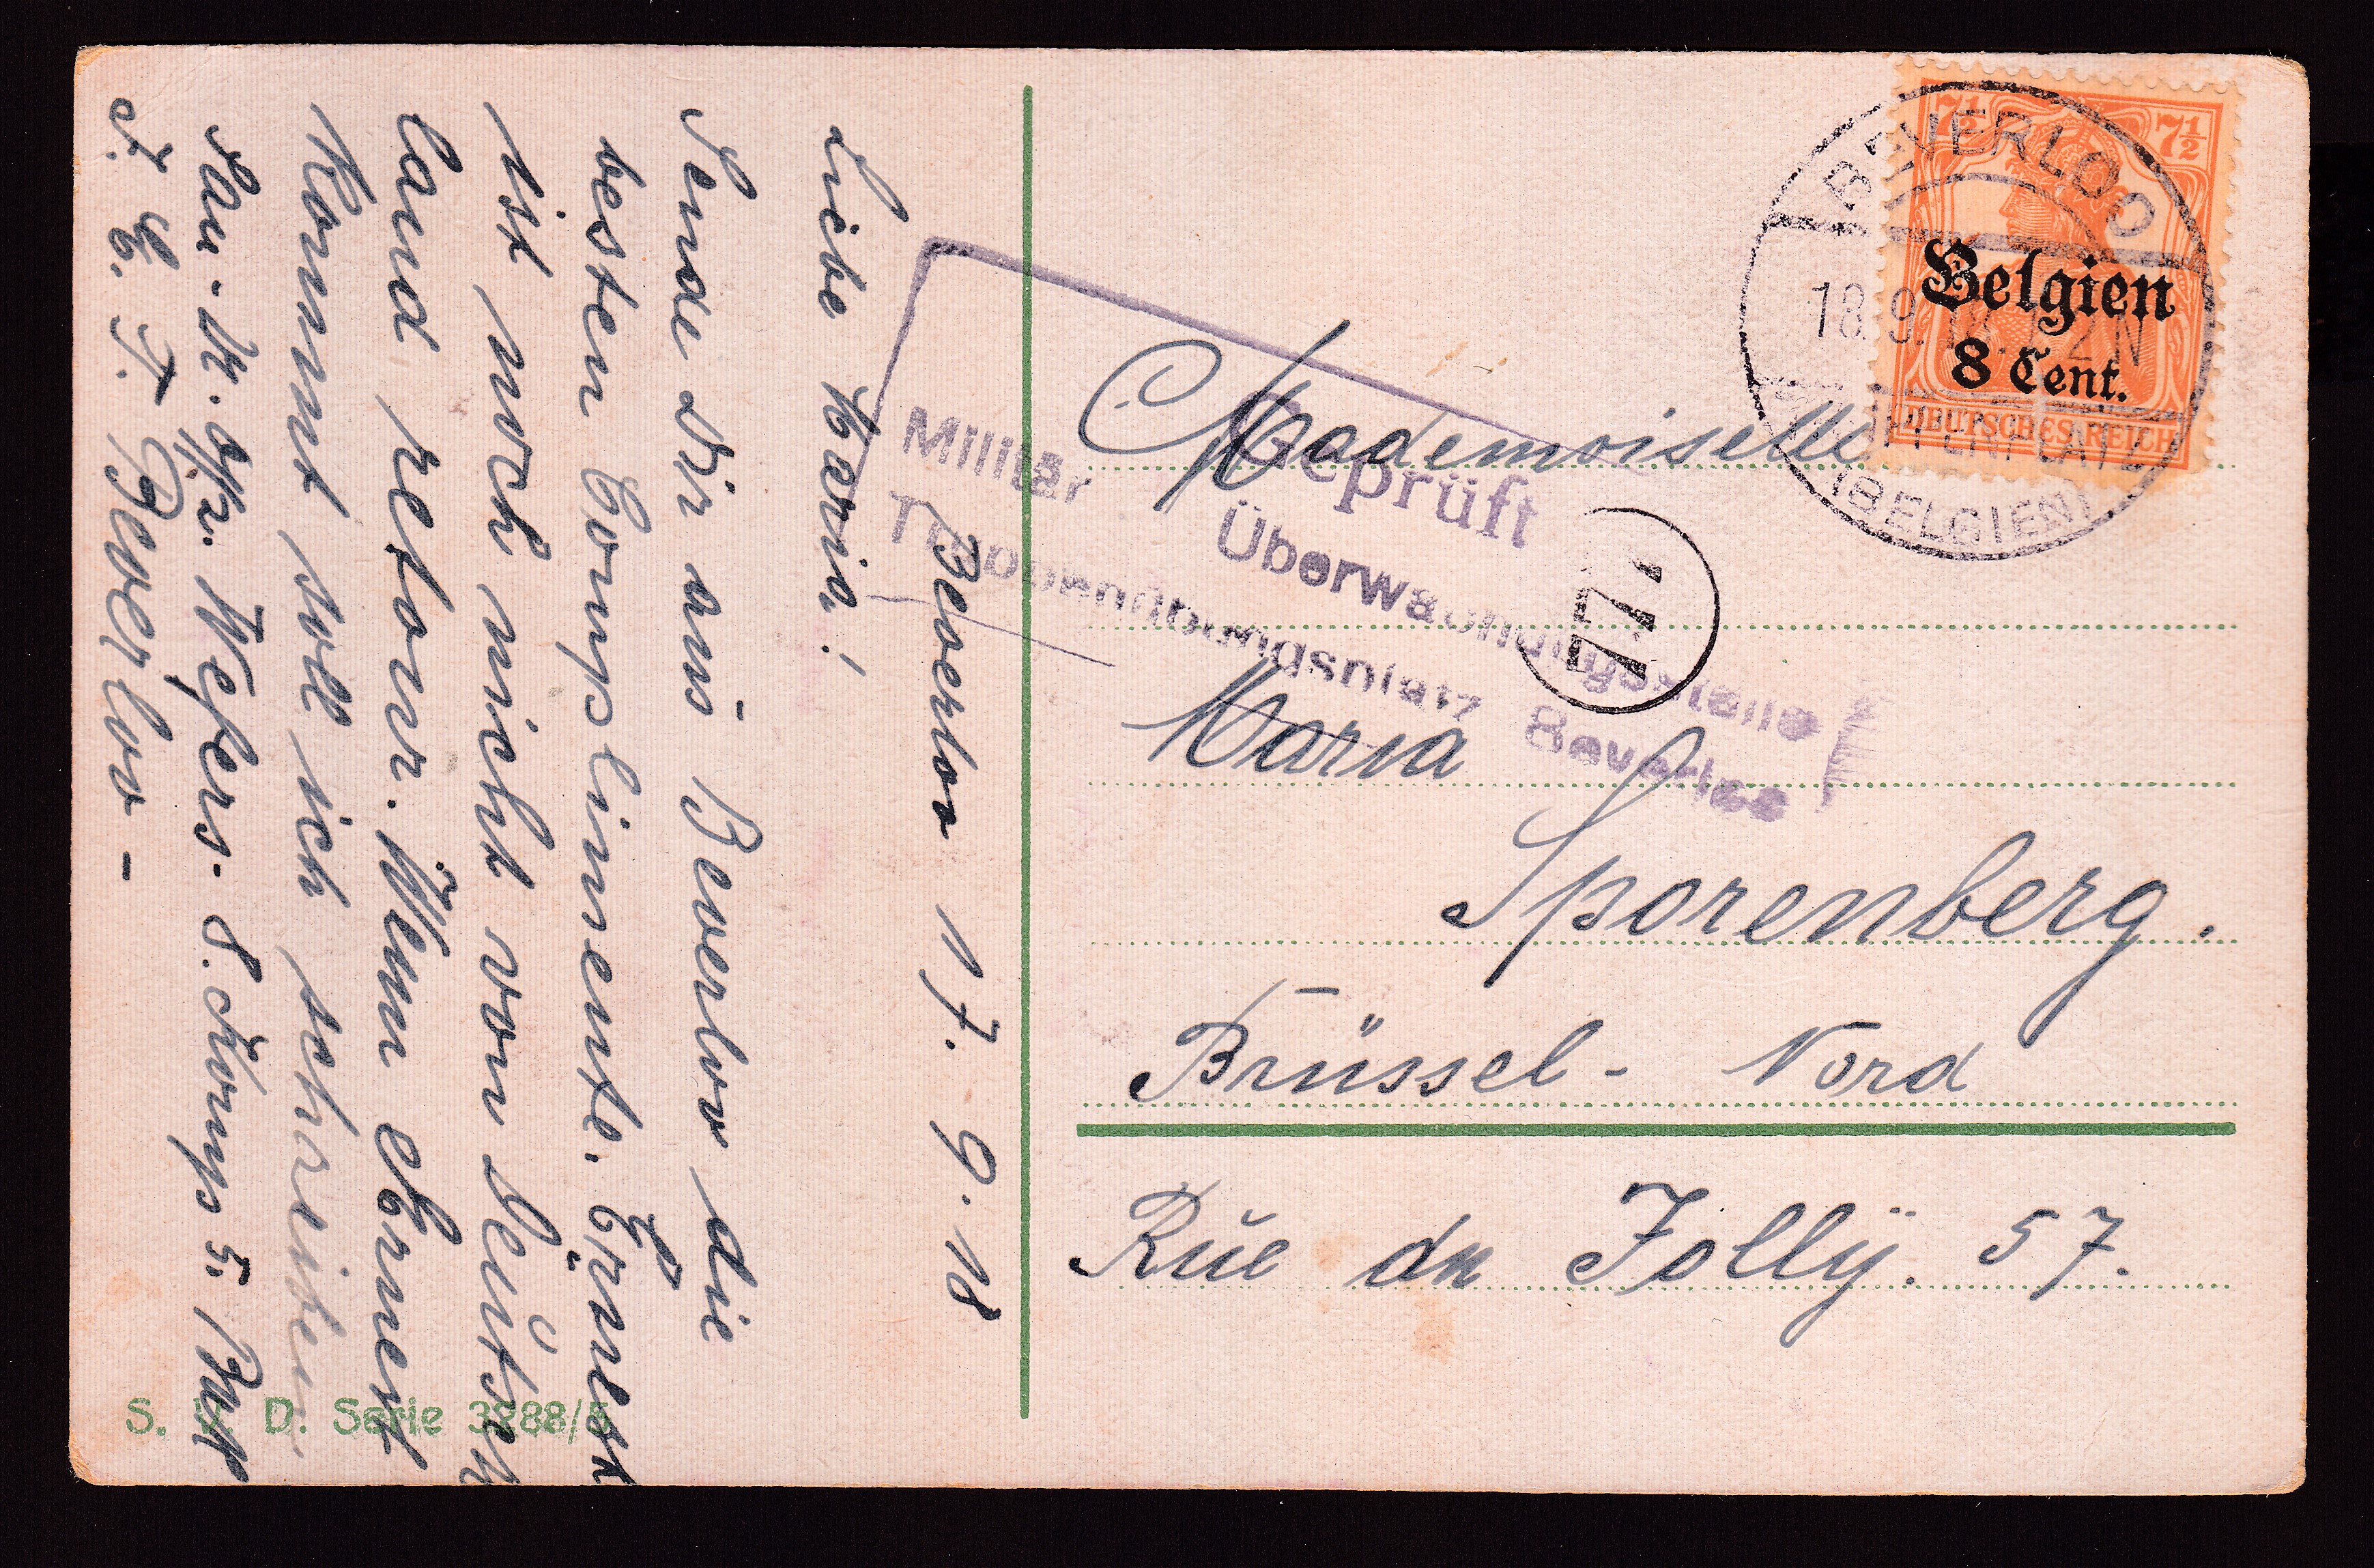 Beverloo 17.9.18
Liebe Maria!
Sende Dir aus Beverloo die
besten Complimente. Ernest
ist noch nicht von Deutsch
land retour. Wenn Ernest
kommt soll sich schreiben
Wefers. 8. Komp 5.
Beverloo -
S. D. Serie 3288/5
7½ 7½
Belgien
8 Cent.
DEUTSCHES REICH
BEVERLOO
18.9.18. 1-2N
(BELGIEN)
Geprüft
Militär Überwachungsstelle
Truppenübungsplatz Beverloo
Mademoiselle
Maria
Sporenberg.
Brüssel - Nord
Rue du Jolly. 57.